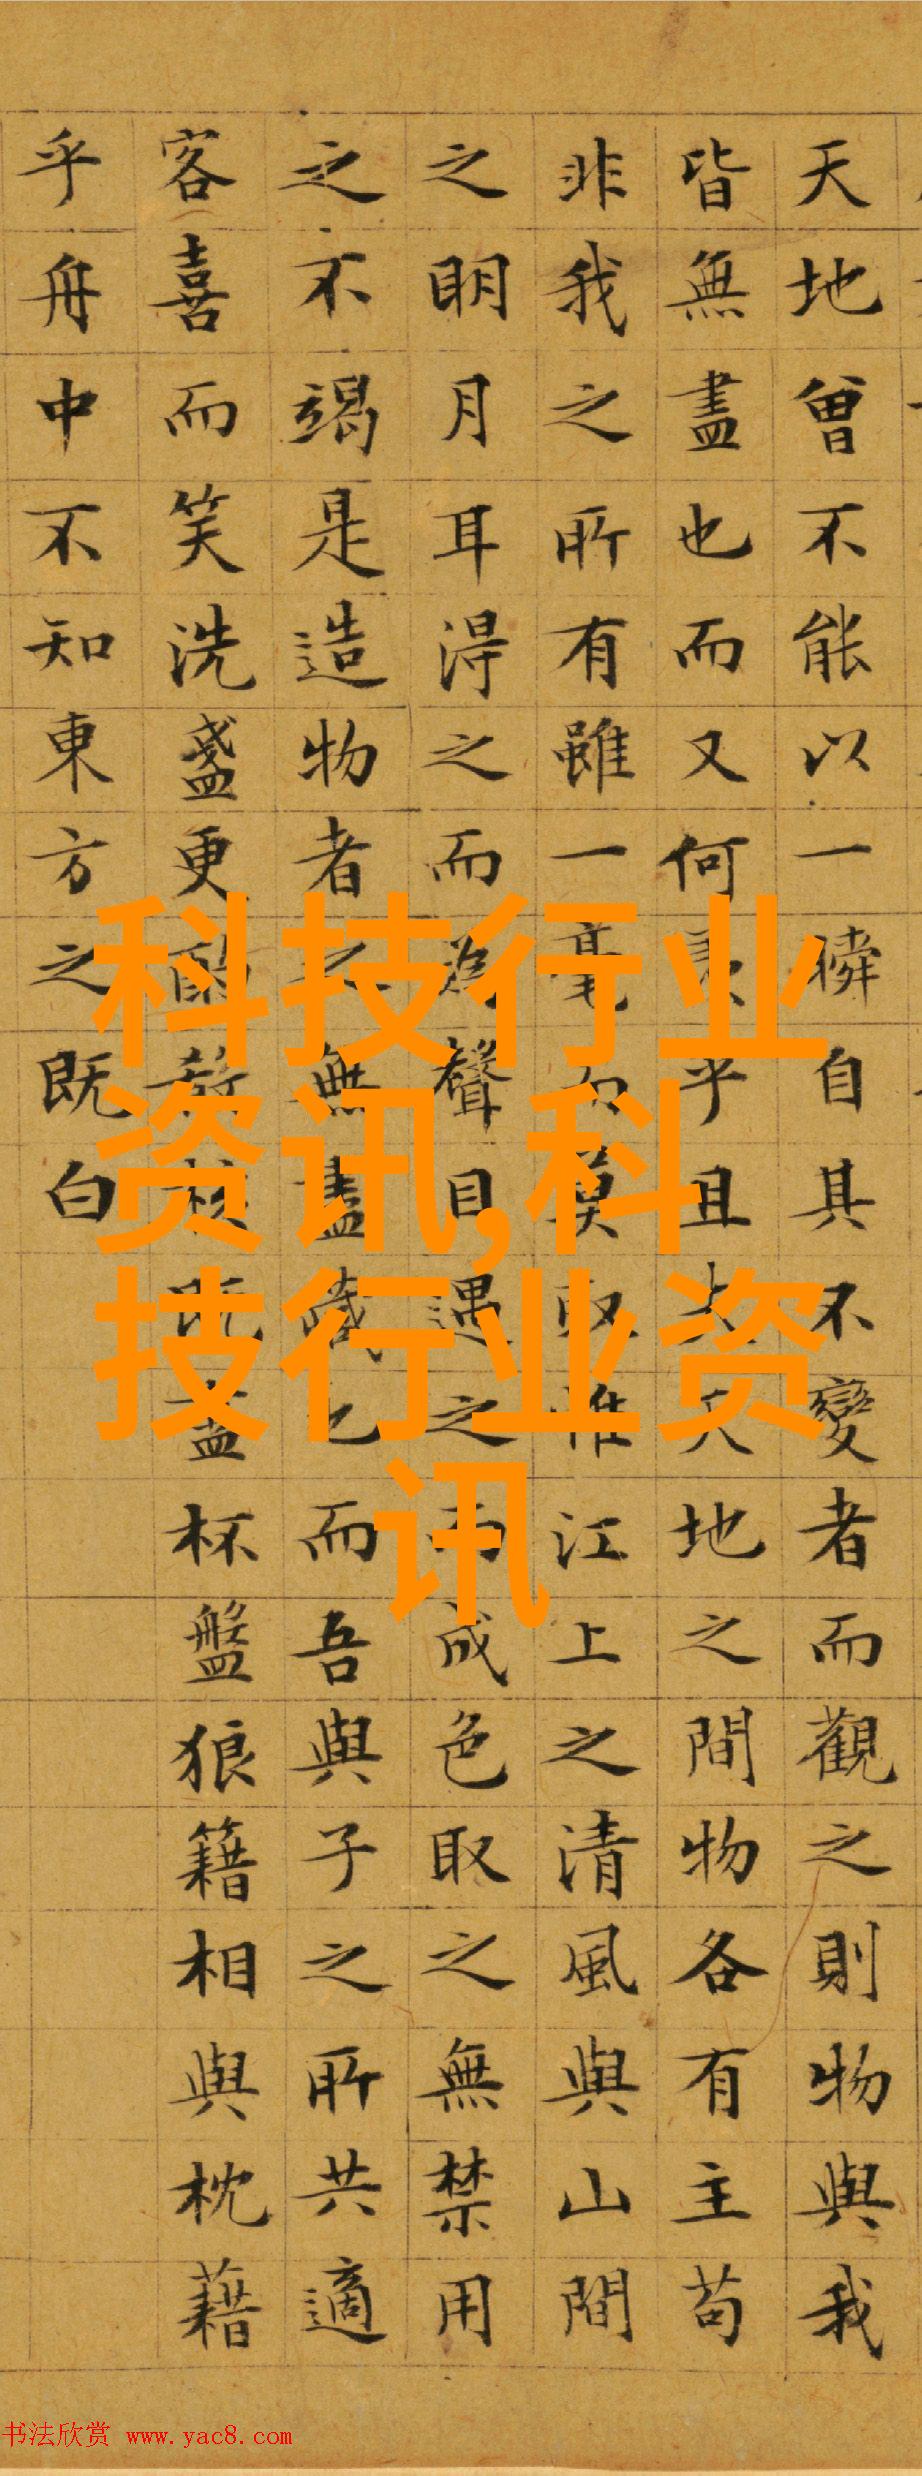 天地曾不能以一瞬自其不變者而觀之則物與我
皆無盡也而又何乎且夫天地之間物各有主苟
非我之所有雖一毫而莫取惟江上之清風與山間
之明月耳得之而為聲目遇之而成色取之無禁用
之不竭是造物者之無盡藏也而吾與子之所共適
客喜而笑洗盞更酌既盡杯盤狼籍相與枕藉
乎舟中不知東方之既白
科技行业
资讯,科
技行业资
讯
书法欣赏 www.yac8.com